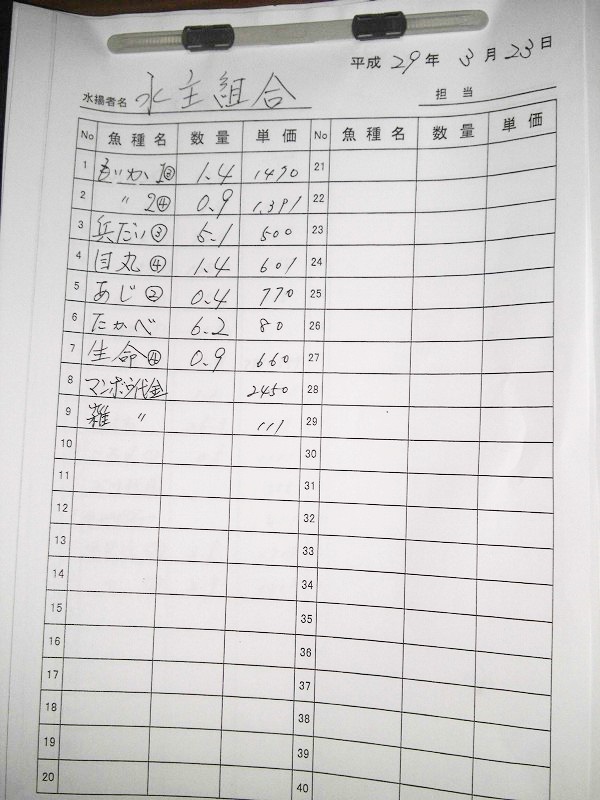 平成 29 年 3 月 23 日
水揚者名 水主組合 担当
No 魚種名 数量 単価 No 魚種名 数量 単価
1 1.4 1470 21
2 〃 2④ 0.9 1,391 22
3 兵だい③ 5.1 500 23
4 目丸④ 1.4 601 24
5 あじ② 0.4 770 25
6 たかべ 6.2 80 26
7 生命④ 0.9 660 27
8 マンボウ代金 2450 28
9 雑 〃 111 29
10 30
11 31
12 32
13 33
14 34
15 35
16 36
17 37
18 38
19 39
20 40